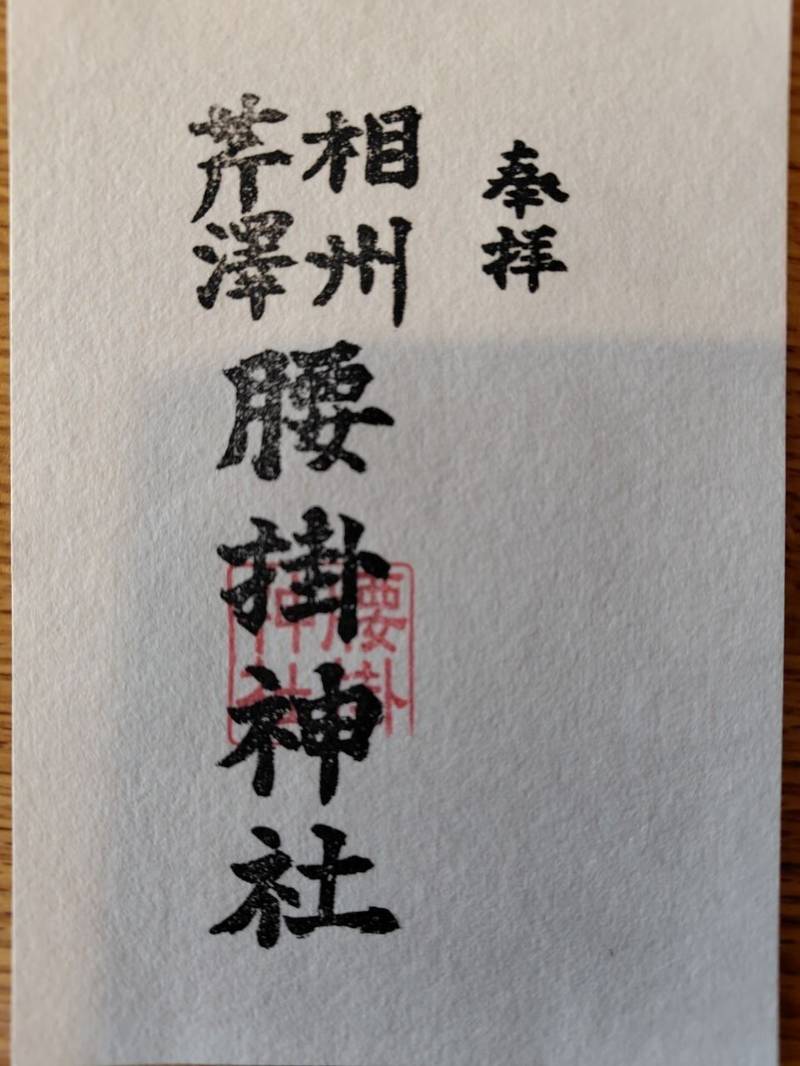 奉拝
相州
芹澤
腰掛神社
腰掛
神社